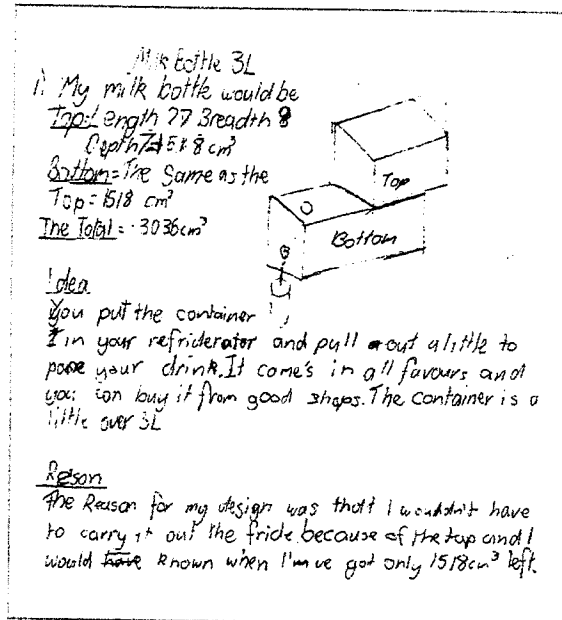 Milk bottle 3L
1) My milk bottle would be
Top: Length 27 Breadth 8
Depth 7 = 1518 cm³
Bottom = The Same as the
Top = 1518 cm³
The Total = 3036cm³
Top
Bottom
Idea
You put the container
in your refriderator and pull out a little to
pore your drink. It come's in all favours and
you can buy it from good shops. The container is a
little over 3L
Reson
The Reason for my design was that I wouldn't have
to carry it out the fride because of the tap and I
would have known when I'm've got only 1518cm³ left.